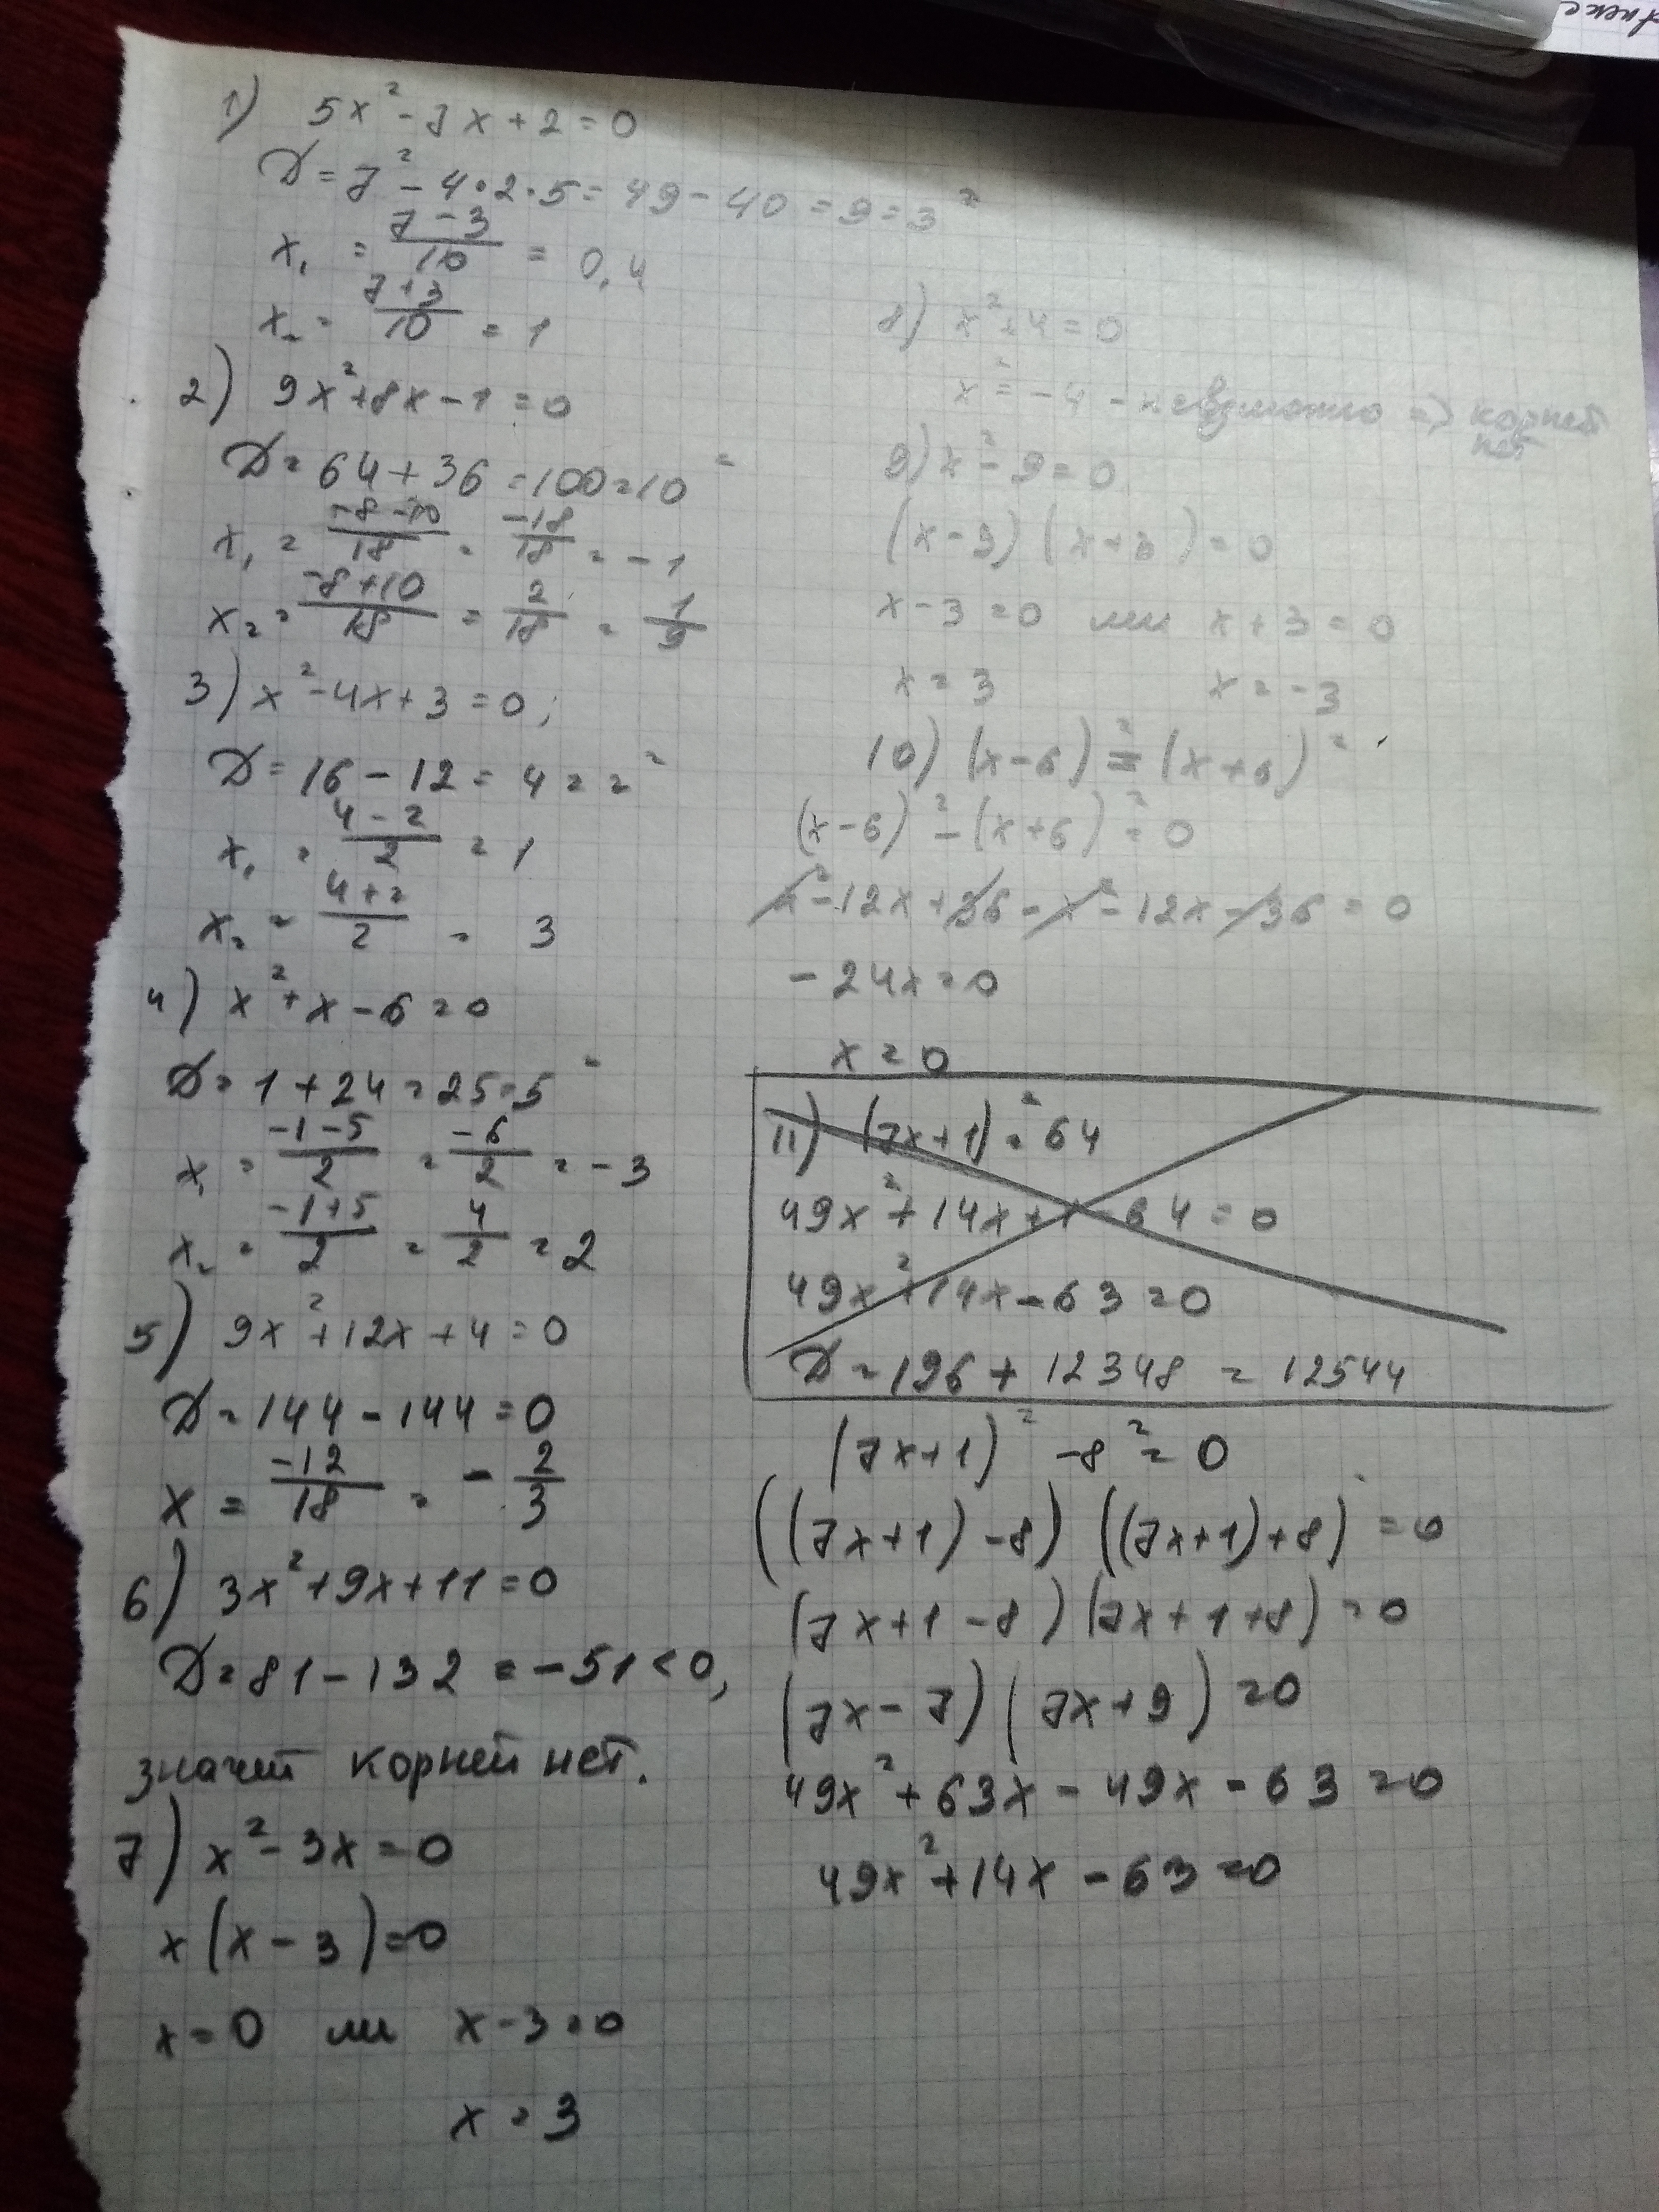 1) 5x² - 7x + 2 = 0
D = 7² - 4·2·5 = 49 - 40 = 9 = 3²
x₁ = (7 - 3)/10 = 0,4
x₂ = (7 + 3)/10 = 1
2) 9x² + 8x - 1 = 0
D = 64 + 36 = 100 = 10²
x₁ = (-8 - 10)/18 = -18/18 = -1
x₂ = (-8 + 10)/18 = 2/18 = 1/9
3) x² - 4x + 3 = 0;
D = 16 - 12 = 4 = 2²
x₁ = (4 - 2)/2 = 1
x₂ = (4 + 2)/2 = 3
4) x² + x - 6 = 0
D = 1 + 24 = 25 = 5²
x₁ = (-1 - 5)/2 = -6/2 = -3
x₂ = (-1 + 5)/2 = 4/2 = 2
5) 9x² + 12x + 4 = 0
D = 144 - 144 = 0
x = -12/18 = -2/3
6) 3x² + 9x + 11 = 0
D = 81 - 132 = -51 < 0,
значит корней нет.
7) x² - 3x = 0
x(x - 3) = 0
x = 0 или x - 3 = 0
x = 3
8) x² + 4 = 0
x² = -4 - невозможно => корней
нет
9) x² - 9 = 0
(x - 3)(x + 3) = 0
x - 3 = 0 или x + 3 = 0
x = 3 x = -3
10) (x - 6)² = (x + 6)²
(x - 6)² - (x + 6)² = 0
x² - 12x + 36 - x² - 12x - 36 = 0
-24x = 0
x = 0
11) (7x + 1)² = 64
49x² + 14x + 1 - 64 = 0
49x² + 14x - 63 = 0
D = 196 + 12348 = 12544
(7x + 1)² - 8² = 0
((7x + 1) - 8) ((7x + 1) + 8) = 0
(7x + 1 - 8)(7x + 1 + 8) = 0
(7x - 7)(7x + 9) = 0
49x² + 63x - 49x - 63 = 0
49x² + 14x - 63 = 0